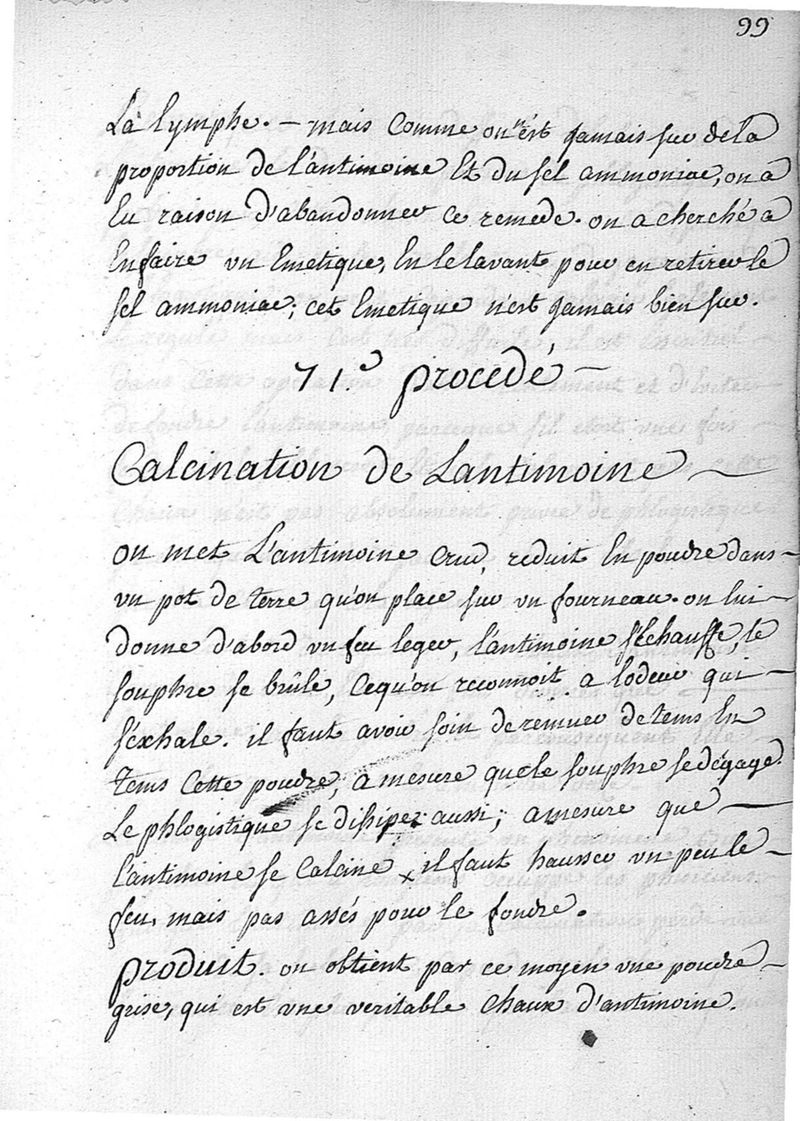 99
La lymphe. — mais Comme on n'est jamais sur de la
proportion de l'antimoine Et du sel ammoniac, on a
Eu raison d'abandonner ce remede. on a cherché a
En faire un Emetique, En le lavant pour en retirer le
sel ammoniac; cet Emetique n'est jamais bien sur.
71.e procedé —
Calcination de Lantimoine —
on met L'antimoine Crud, reduit En poudre dans —
un pot de terre qu'on place sur un fourneau. on lui —
donne d'abord un feu leger, l'antimoine s'échauffe, le
souphre se brûle, Cequ'on reconnoit a lodeur qui —
s'éxhale. il faut avoir soin de remuer de tems En
tems Cette poudre, a mesure que le souphre se dégage.
Le phlogistique se dissipe aussi; a mesure que —
l'antimoine se Calcine x il faut hausser un peu le —
feu, mais pas assés pour le fondre.
produit. on obtient par ce moyen une poudre —
grise, qui est une veritable Chaux d'antimoine.